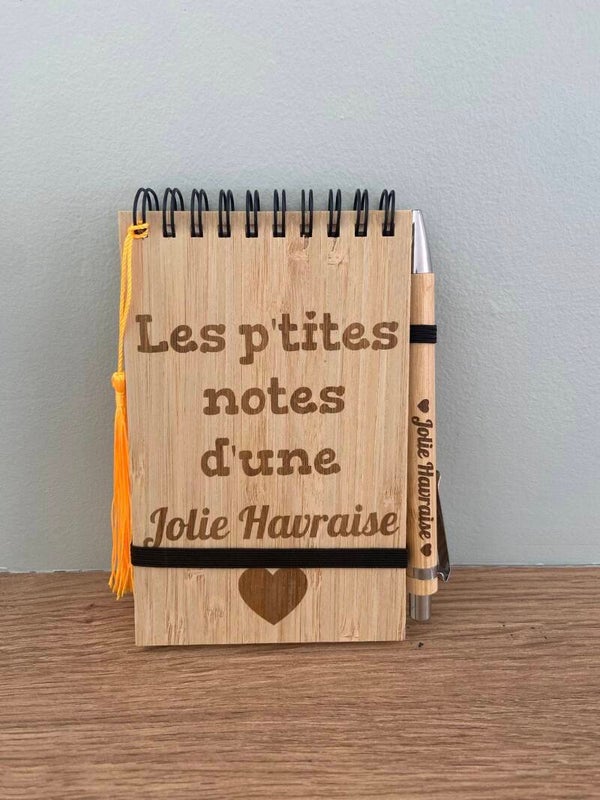 Les p'tites
notes
d'une
Jolie Havraise
♥ Jolie Havraise ♥